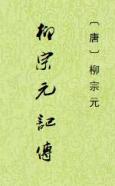 〔唐〕柳宗元
柳宗元記傳